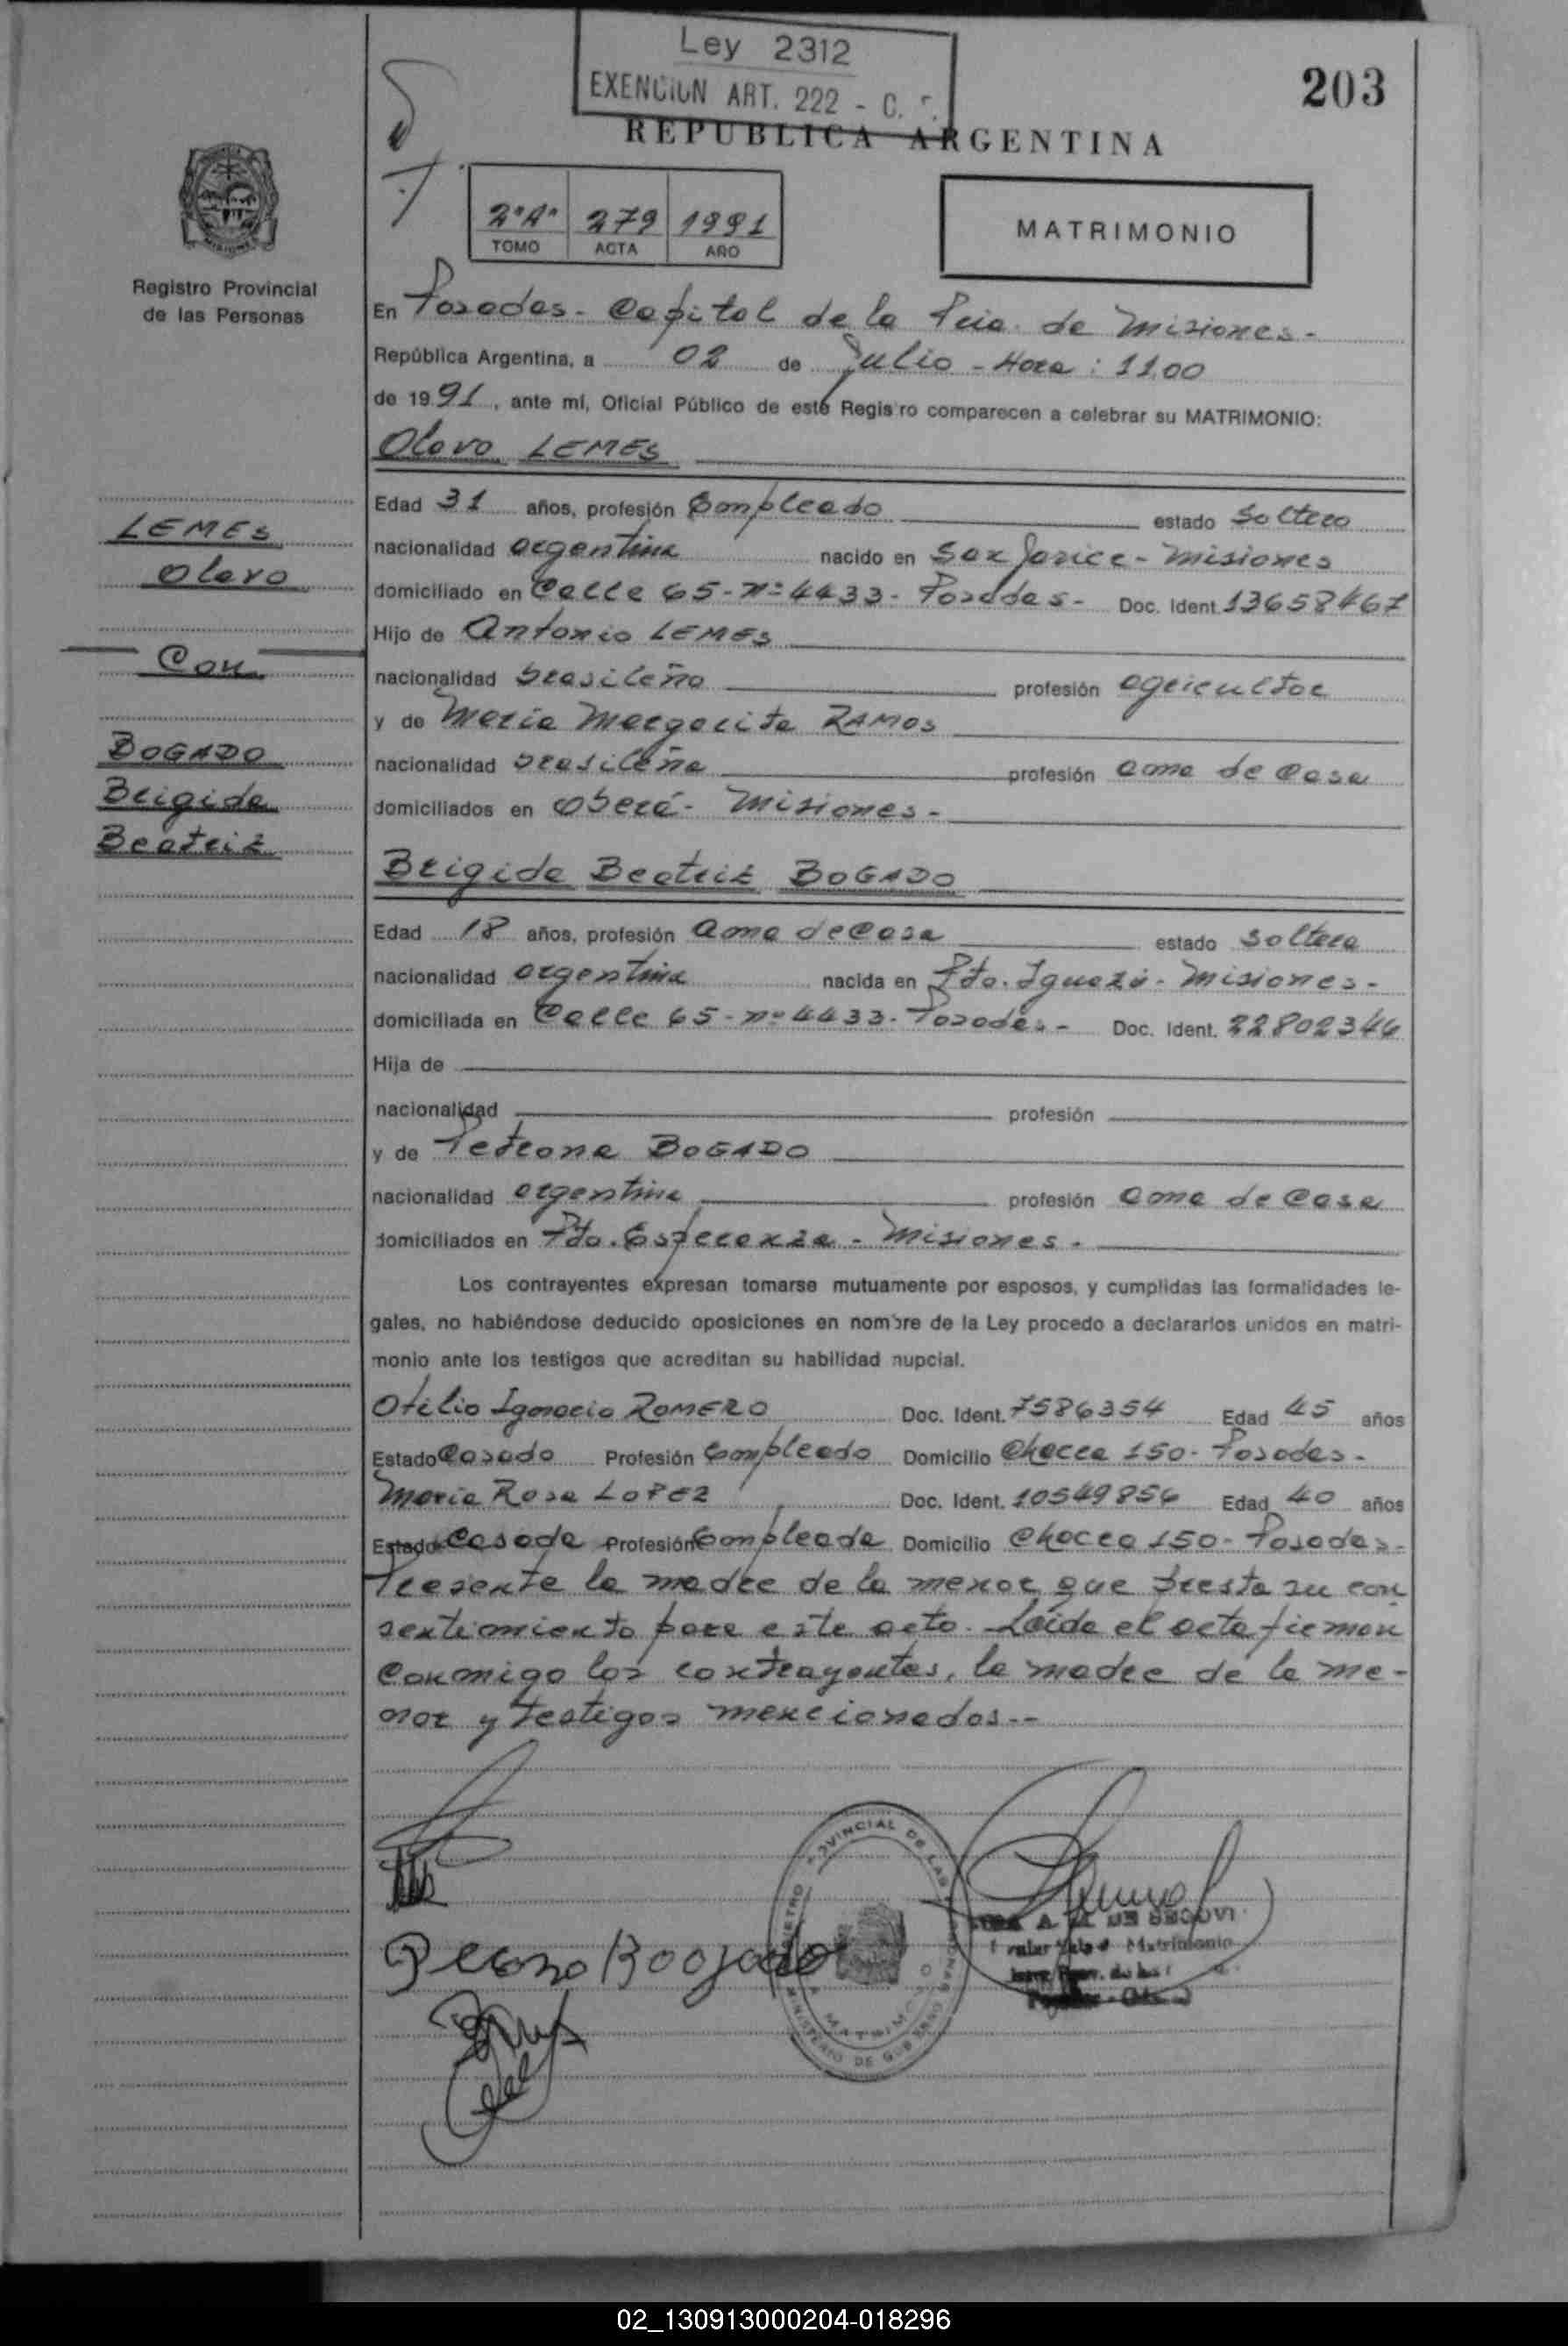 Ley 2312
EXENCION ART. 222 - C.
203
REPUBLICA ARGENTINA
2º A° 279 1991
TOMO ACTA AÑO
MATRIMONIO
Registro Provincial
de las Personas
En Posadas - Capital de la Pcia. de Misiones -
República Argentina, a 02 de Julio - Hora: 11.00
de 1991, ante mí, Oficial Público de este Registro comparecen a celebrar su MATRIMONIO:
Olavo LEMES
Edad 31 años, profesión Empleado estado Soltero
nacionalidad argentina nacido en San Javier - Misiones
domiciliado en Calle 65 - nº 4433 - Posadas - Doc. Ident. 13658467
Hijo de Antonio LEMES
nacionalidad brasileño profesión agricultor
y de Maria Margarita RAMOS
nacionalidad brasileña profesión ama de casa
domiciliados en Oberá - Misiones -
LEMES
Olavo
Con
BOGADO
Brigida
Beatriz
Brigida Beatriz BOGADO
Edad 18 años, profesión ama de casa estado soltera
nacionalidad argentina nacida en Pto. Iguazú - Misiones -
domiciliada en Calle 65 - nº 4433 - Posadas - Doc. Ident. 22802346
Hija de
nacionalidad profesión
y de Petrona BOGADO
nacionalidad argentina profesión ama de casa
domiciliados en Pto. Esperanza - Misiones -
Los contrayentes expresan tomarse mutuamente por esposos, y cumplidas las formalidades le-
gales, no habiéndose deducido oposiciones en nombre de la Ley procedo a declararlos unidos en matri-
monio ante los testigos que acreditan su habilidad nupcial.
Otilio Ignacio ROMERO Doc. Ident. 7586354 Edad 45 años
Estado Casado Profesión Empleado Domicilio Chacra 150 - Posadas -
Maria Rosa LOPEZ Doc. Ident. 10549856 Edad 40 años
Estado Casada Profesión Empleada Domicilio Chacra 150 - Posadas -
Presente la madre de la menor que presta su con
sentimiento para este acto. Leida el acta firman
conmigo los contrayentes, la madre de la me-
nor y testigos mencionados --
REGISTRO PROVINCIAL DE LAS PERSONAS
MINISTERIO DE GOBIERNO
DE SEGOVI
Matrimonio
02_130913000204-018296